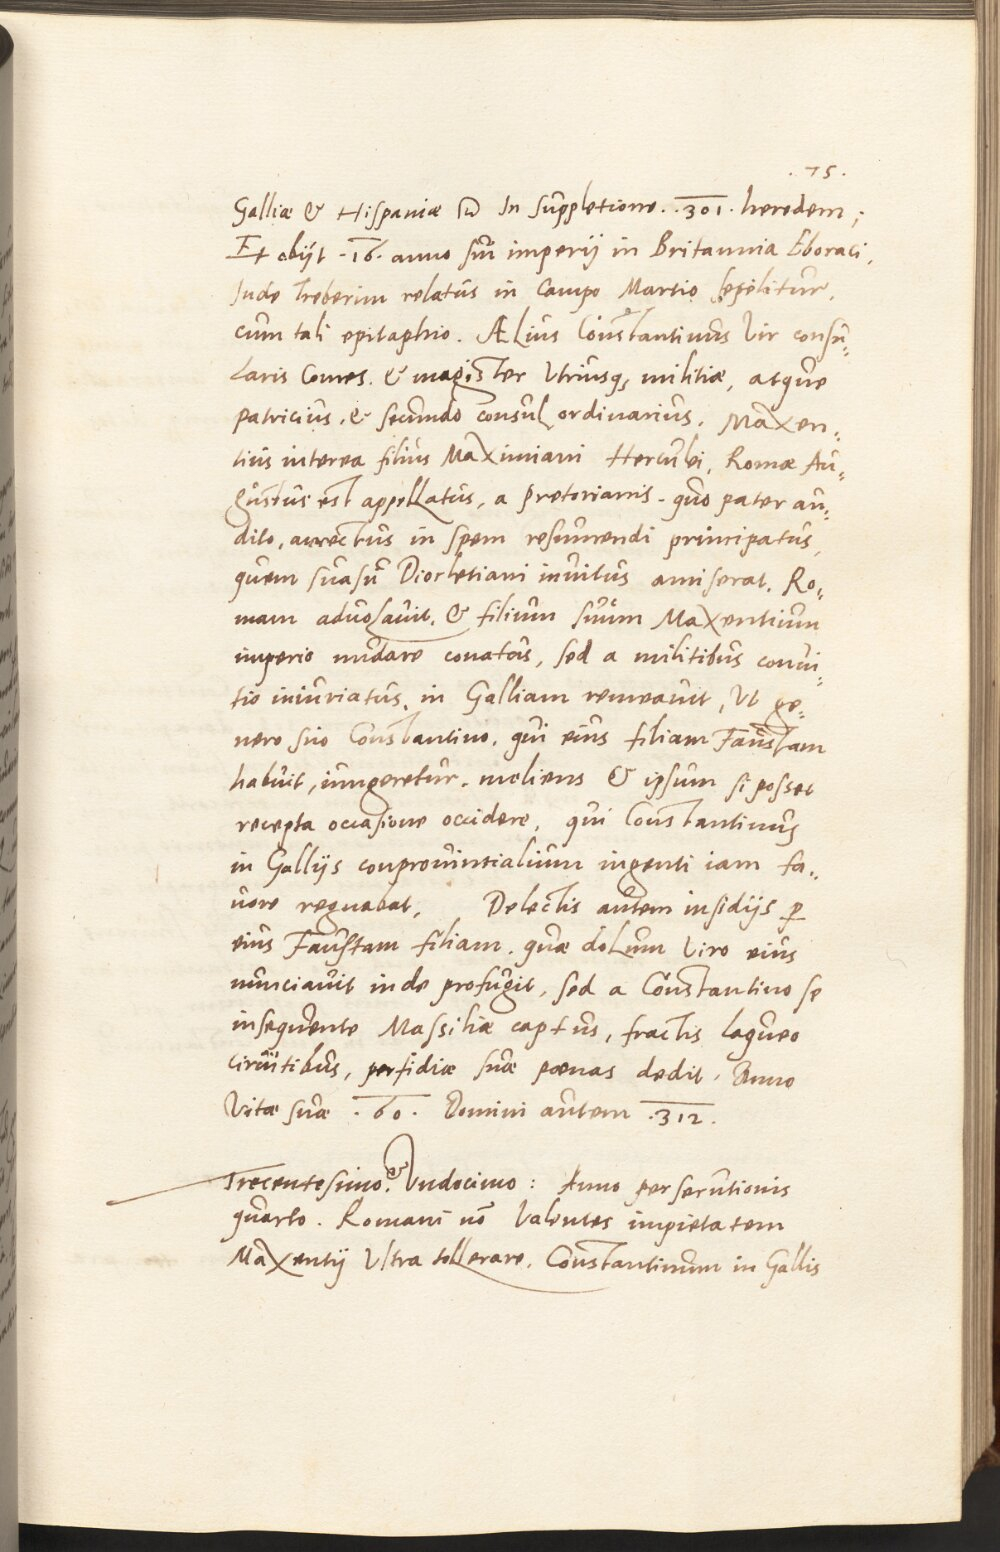 .75.
Galliæ & Hispaniæ In suppletione. .301. heredem;
Et obijt .16. anno sui imperij in Britannia Eboraci,
Inde Treberim relatus in Campo Martio sepelitur,
cum tali epitaphio. Ælius Constantinus Vir consu=
laris Comes. & magister Utriusq, militiæ, atque
patricius, & secundo consul ordinarius. Maxen=
tius interea filius Maximiani Herculei, Romæ Au=
gustus est appellatus, a pretorianis. quo pater au=
dito, arrectus in spem resumendi principatus,
quem suasu Diocletiani inuitus amiserat. Ro=
mam aduolauit, & filium suum Maxentium
imperio nudare conatus, sed a militibus conui=
tio iniuriatus, in Galliam remeauit, Ut ge=
nero suo Constantino, qui eius filiam Faustam
habuit, iungeretur. moliens & ipsum si posset
recepta occasione occidere, qui Constantinus
in Gallijs conprouintialium ingenti iam fa=
uore regnabat, Delectis autem insidijs p
eius Faustam filiam, quæ dolum Viro eius
nunciauit inde profugit, sed a Constantino se
insequente Massiliæ captus, fractis laqueo
ceruitibus, perfidiæ suæ pœnas dedit. Anno
Vitæ suæ .60. Domini autem .312.
Trecentesimo. & Undecimo: Anno perserutionis
quarto. Romani nō Valentes impietatem
Maxentij Ultra tollerare, Constantinum in Gallis